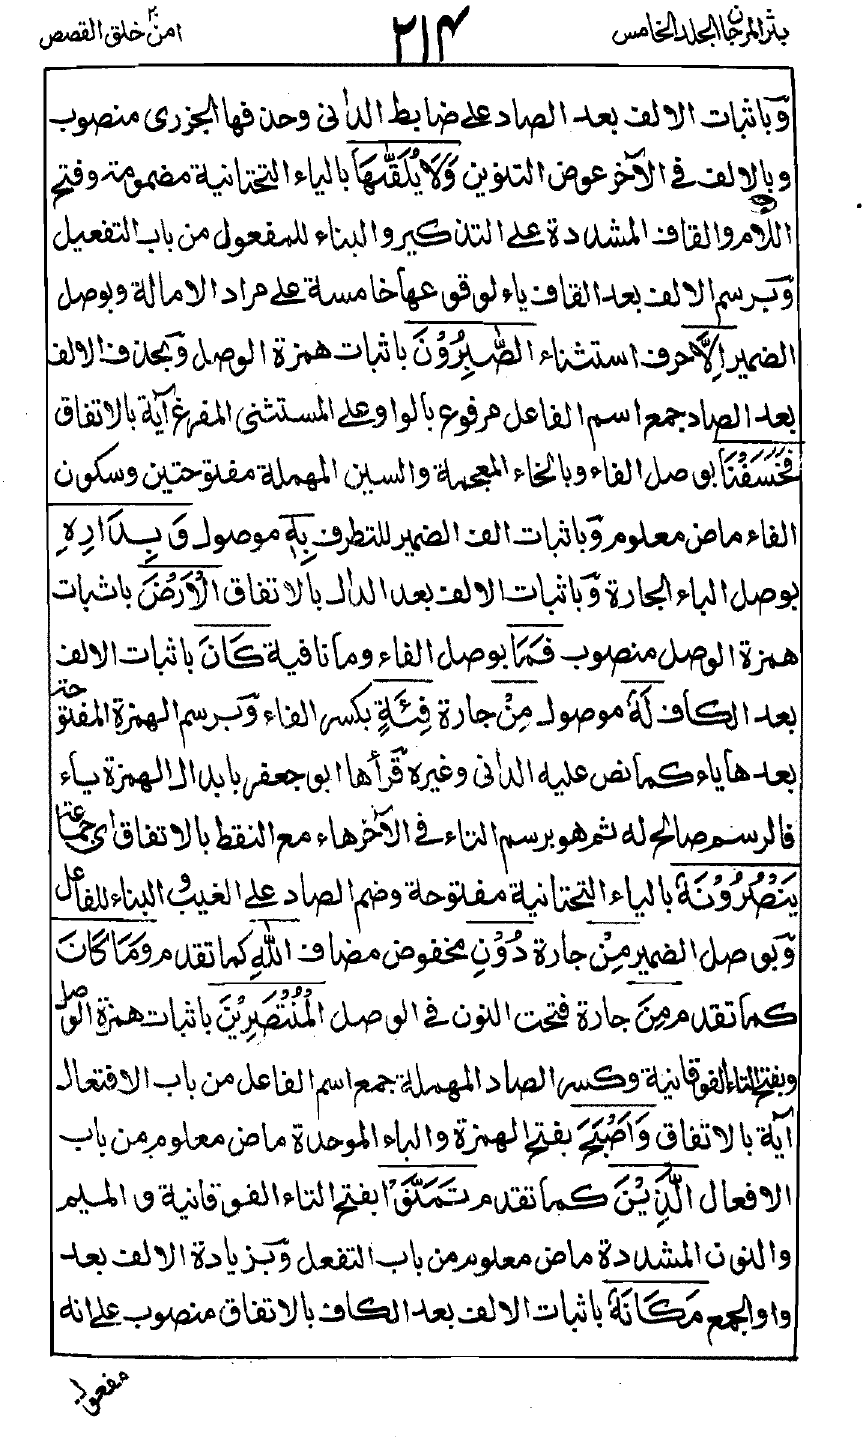 نثر المرجان الجلد الخامس
٢١٤
امن خلق القصص
وباثبات الالف بعد الصاد على ضابط الدانى وحذفها الجزرى منصوب
وبالالف فى الآخر عوض التنوين وَلَا يُلَقّٰىهَا بالياء التحتانية مضمومة وفتح
اللام والقاف المشددة على التذكير والبناء للمفعول من باب التفعيل
وبرسم الالف بعد القاف ياء لوقوعها خامسة على مراد الامالة وبوصل
الضمير اِلَّا حرف استثناء الصّٰبِرُوْنَ باثبات همزة الوصل وبحذف الالف
بعد الصاد جمع اسم الفاعل مرفوع بالواو على المستثنى المفرغ آية بالاتفاق
فَخَسَفْنَا بوصل الفاء وبالخاء المعجمة والسين المهملة مفتوحتين وسكون
الفاء ماض معلوم وباثبات الف الضمير للتطرف بِهٖ موصول وَبِدَارِهِ
بوصل الباء الجارة وباثبات الالف بعد الدال بالاتفاق الْاَرْضَ باثبات
همزة الوصل منصوب فَمَا بوصل الفاء وما نافية كَانَ باثبات الالف
بعد الكاف لَهٗ موصول مِنْ جارة فِئَةٍ بكسر الفاء وبرسم الهمزة المفتوحة
بعدها ياء كما نص عليه الدانى وغيره قرأها ابو جعفر بابدال الهمزة ياء
فالرسم صالح له ثم هو برسم التاء فى الآخر هاء مع النقط بالاتفاق اى جماعة
يَنْصُرُوْنَهٗ بالياء التحتانية مفتوحة وضم الصاد على الغيب والبناء للفاعل
وبوصل الضمير مِنْ جارة دُوْنِ مخفوض مضاف اللّٰهِ كما تقدم وَمَا كَانَ
كما تقدم مِنَ جارة فتحت النون فى الوصل الْمُنْتَصِرِيْنَ باثبات همزة الوصل
وبفتح التاء الفوقانية وكسر الصاد المهملة جمع اسم الفاعل من باب الافتعال
آية بالاتفاق وَاَصْبَحَ بفتح الهمزة والباء الموحدة ماض معلوم من باب
الافعال الَّذِيْنَ كما تقدم تَمَنَّوْا بفتح التاء الفوقانية والميم
والنون المشددة ماض معلوم من باب التفعل وبزيادة الالف بعد
واو الجمع مَكَانَهٗ باثبات الالف بعد الكاف بالاتفاق منصوب على انه
مفعول